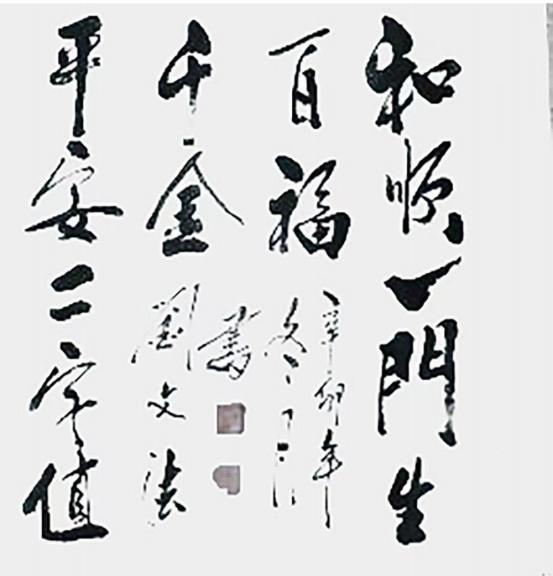 和順一門生
百福
辛卯年
冬月
平安二字值
千金
劉文法
書